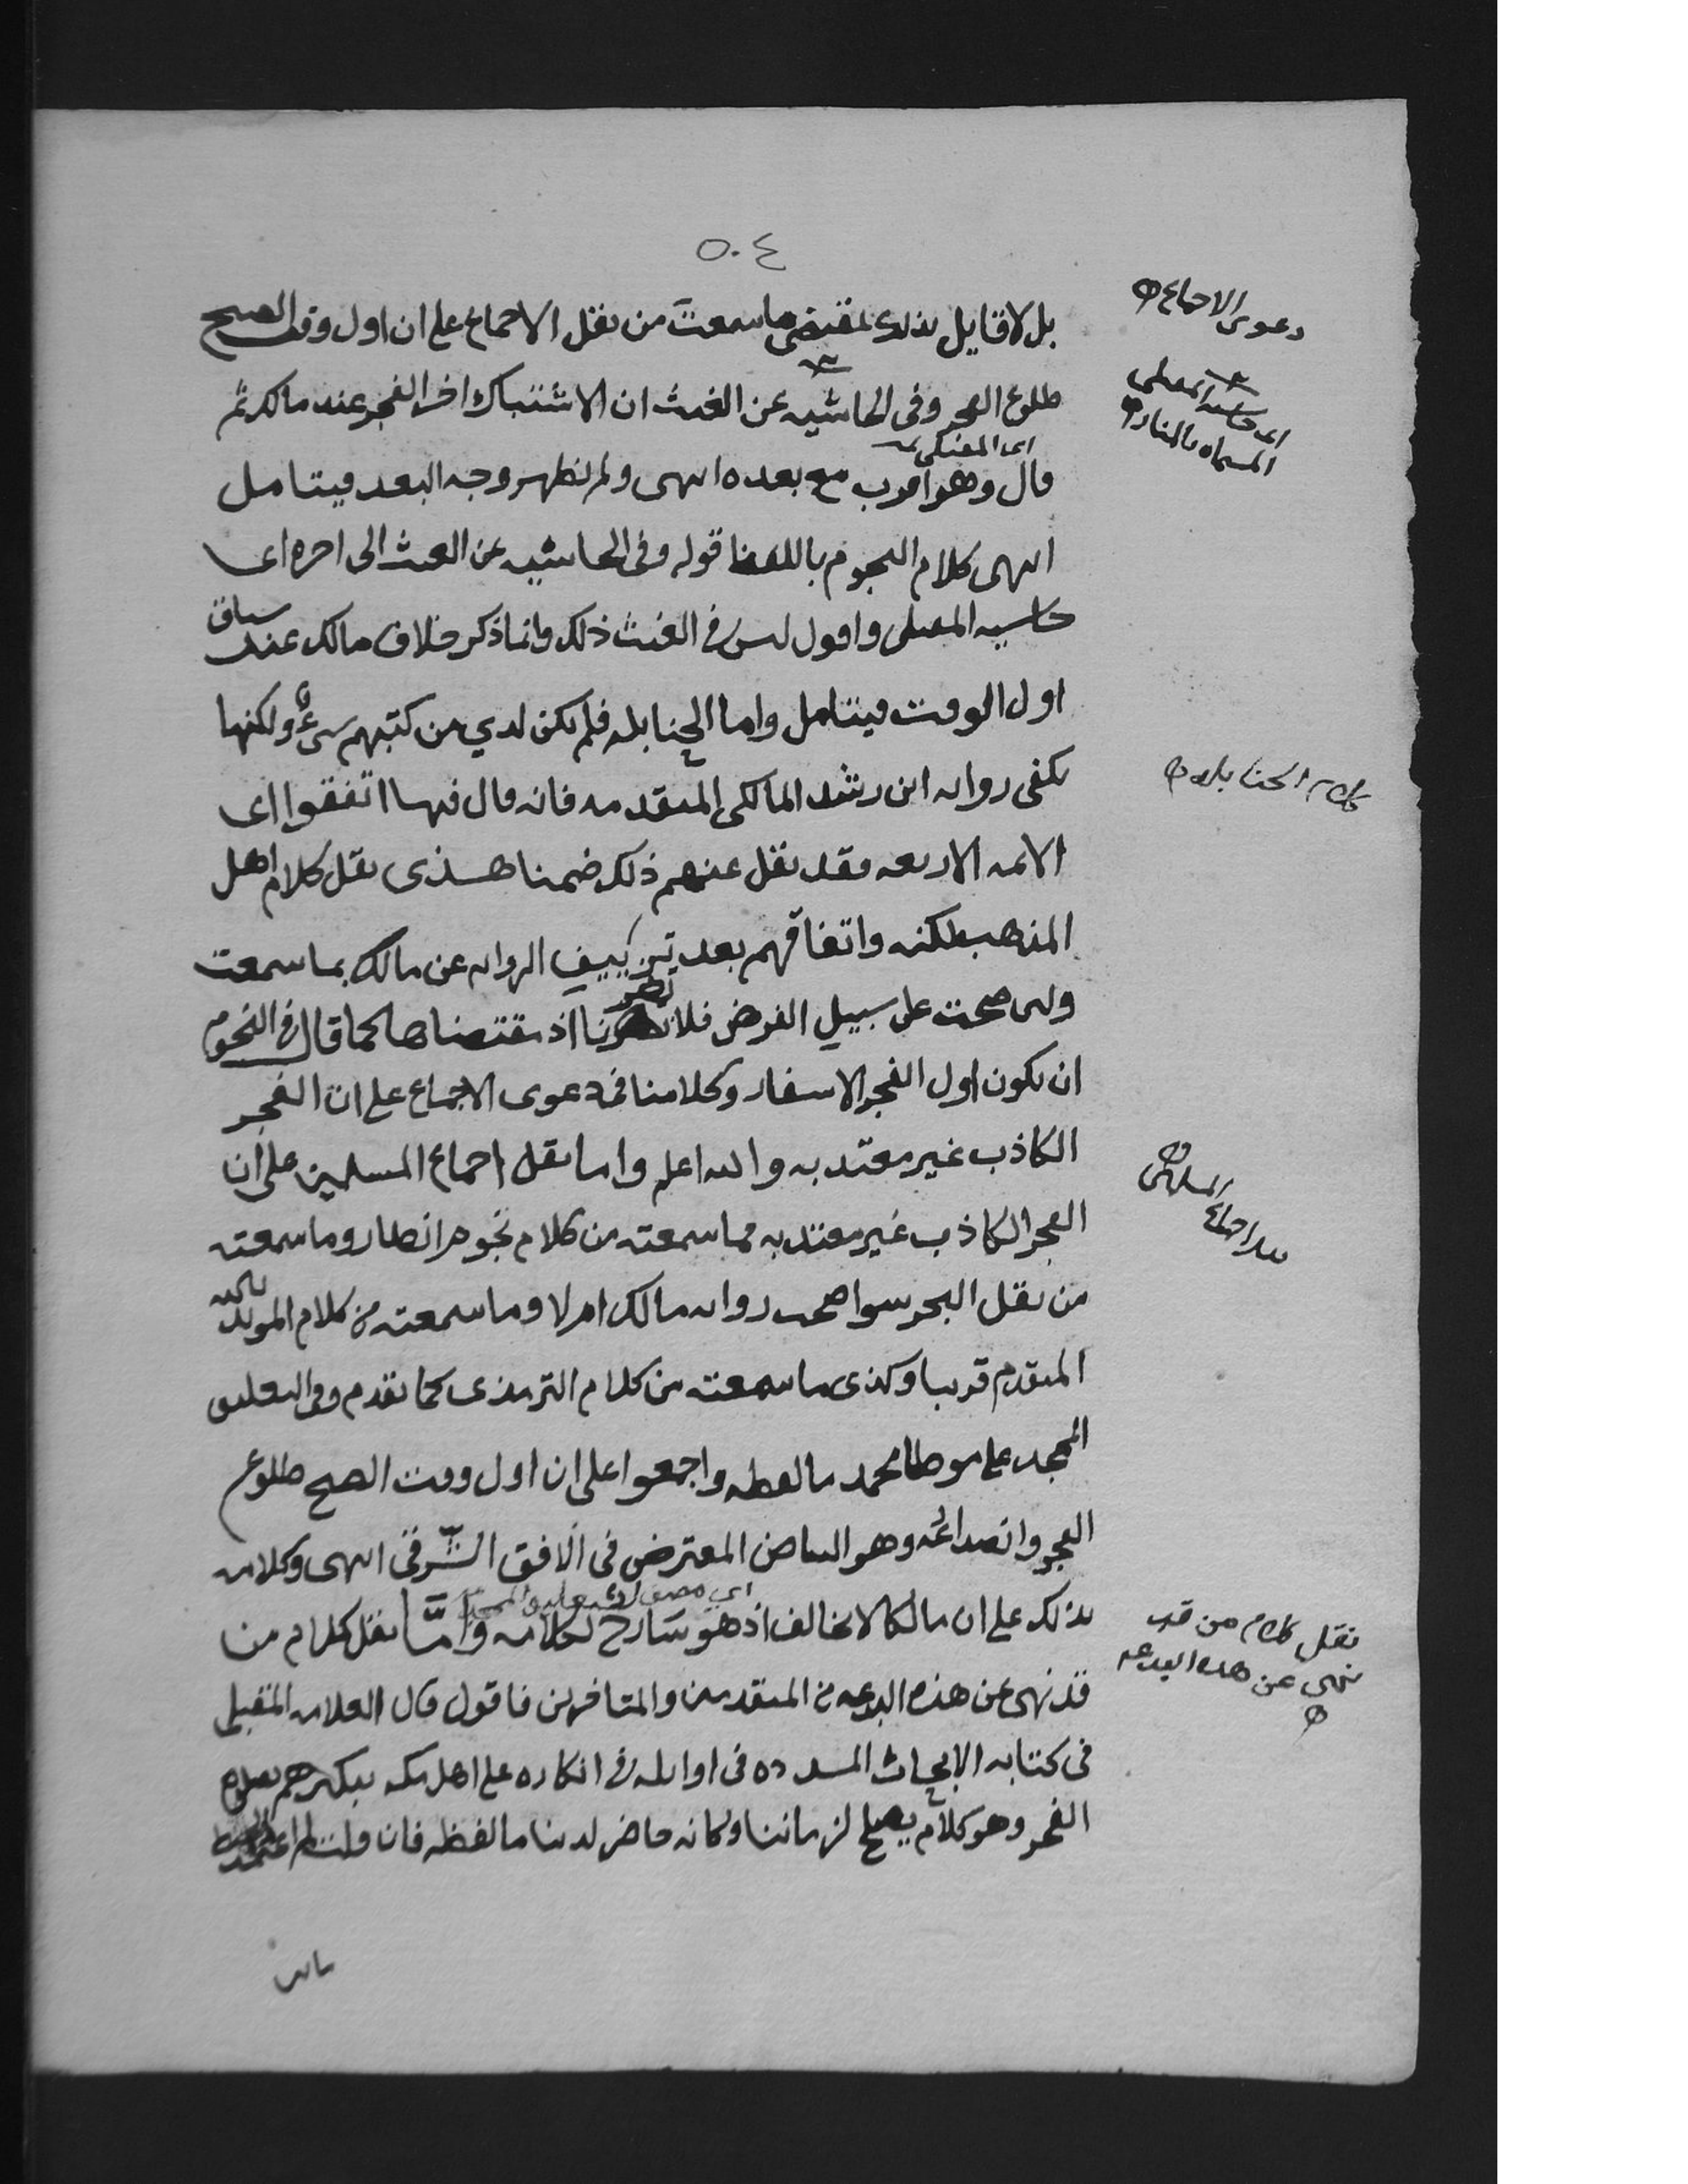 ٥٠٤
بل لا قايل بذلك لمقتضى ما سمعت من نقل الاجماع على ان اول وقت الصبح
طلوع الفجر وفى الحاشيه عن الغيث ان الاشتباك اخر الفجر عند مالك ثم
اى المفتى
قال وهو اقرب مع بعده انتهى ولم يظهر وجه البعد فيتامل
انتهى كلام النجوم باللفظ قوله وفى الحاشيه عن الغيث الى اخره اى
حاشيه المقبلى واقول ليس فى الغيث ذلك وانما ذكر خلاف مالك عند سياق
اول الوقت فيتامل واما الحنابله فلم يكن لدي من كتبهم شيء ولكنها
تكفى روايه ابن رشد المالكى المتقدمه فانه قال فيها اتفقوا اى
الائمه الاربعه فقد نقل عنهم ذلك ضمنا هذى نقل كلام اهل
المذهب لكنه واتفاقهم بعد تزييف الروايه عن مالك بما سمعت
ولئن صحت على سبيل الفرض فلا تضرنا اذ مقتضاها كما قال فى النجوم
ان يكون اول الفجر الاسفار وكلامنا فى دعوى الاجماع على ان الفجر
الكاذب غير معتد به والله اعلم واما نقل اجماع المسلمين على ان
الفجر الكاذب غير معتد به فما سمعته من كلام نجوم انظار وما سمعته
من نقل البحر سوا صحت روايه مالك ام لا وما سمعته من كلام المويد بالله
المتقدم قريبا وكذى ما سمعته من كلام الترمذى كما تقدم وفى التعليق
الممجد على موطا محمد ما لفظه واجمعوا على ان اول وقت الصبح طلوع
الفجر وانصداعه وهو البياض المعترض فى الافق الشرقى انتهى وكلامه
اي مصنف التعليق الممجد
بذلك على ان مالكا لا يخالف اذ هو شارح لكلامه وامَّا نقل كلام من
قد نهى عن هذه البدعه من المتقدمين والمتاخرين فاقول قال العلامه المقبلى
فى كتابه الابحاث المسدده فى اوايله فى انكاره على اهل مكه تبكيرهم بصلاة
الفجر وهو كلام يصلح لزماننا وكانه حاضر لدينا ما لفظه فان قلت لم
دعوى الاجماع
اى حاشيه المقبلى
المسماه بالمنار
كلام الحنابله
نقل اجماع المسلمين
نقل كلام من قد
نهى عن هذه البدعه